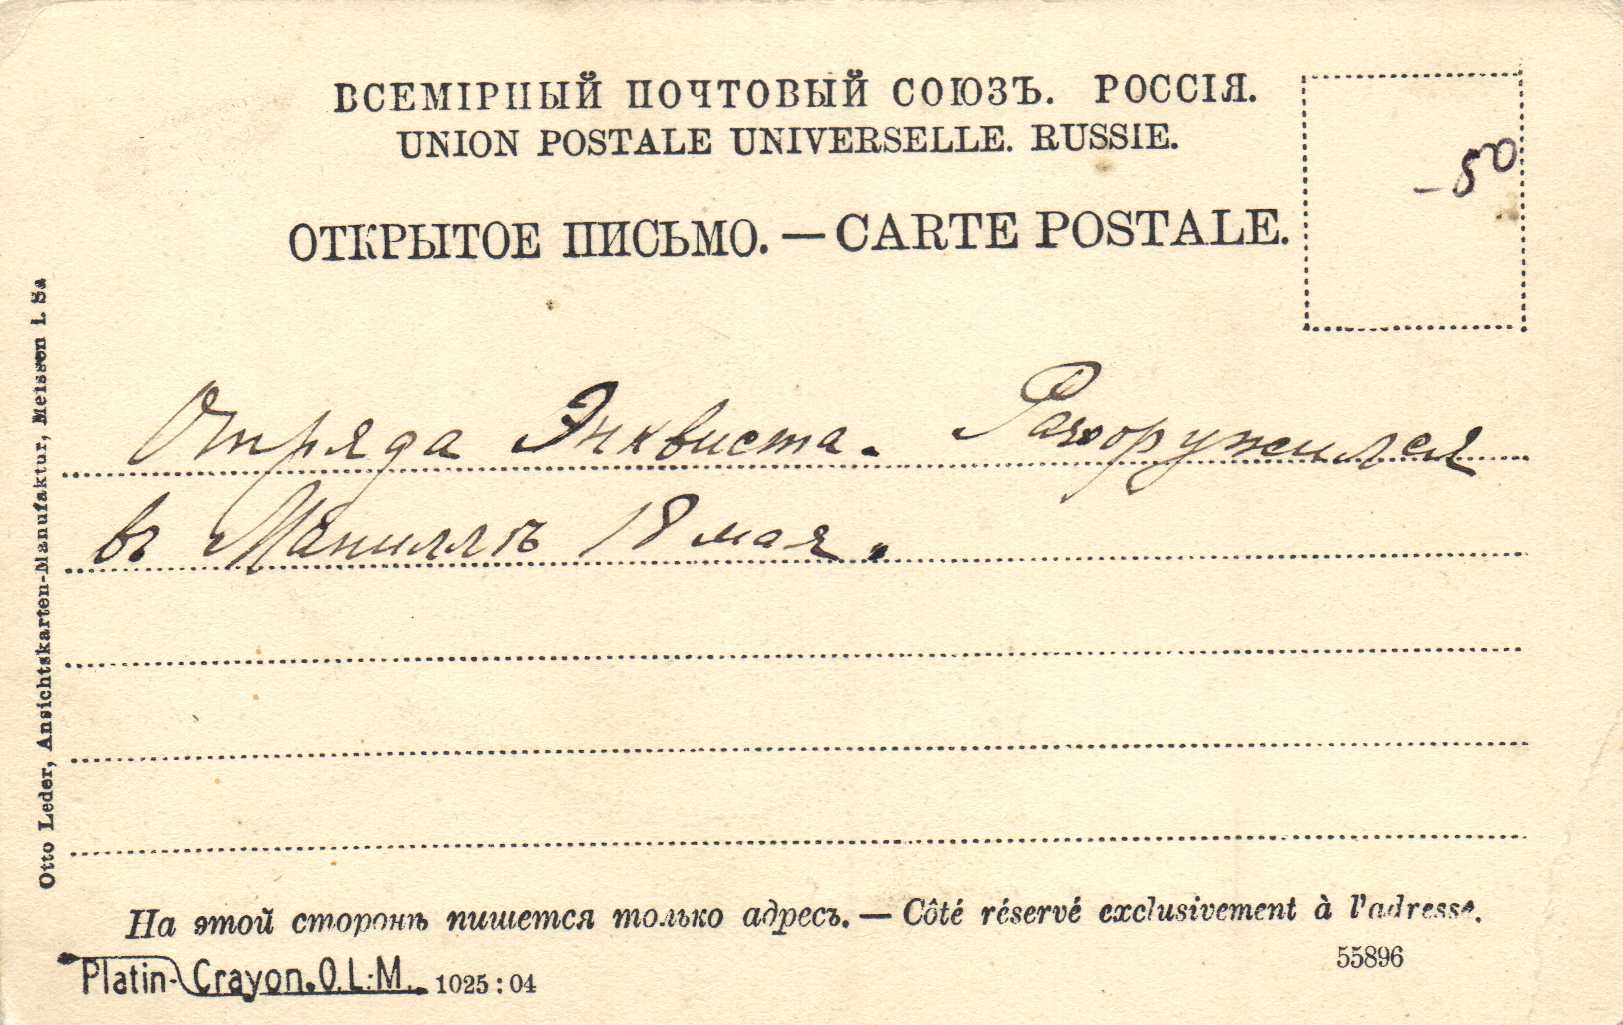 ВСЕМІРНЫЙ ПОЧТОВЫЙ СОЮЗЪ. РОССІЯ.
UNION POSTALE UNIVERSELLE. RUSSIE.
ОТКРЫТОЕ ПИСЬМО. — CARTE POSTALE.
- 50
Отряда Энквиста. Разоружился
въ Маниллѣ 18 мая.
На этой сторонѣ пишется только адресъ. — Côté réservé exclusivement à l'adresse.
Platin-Crayon. O. L. M. 1025 : 04
55896
Otto Leder, Ansichtskarten-Manufaktur, Meissen i. Sa